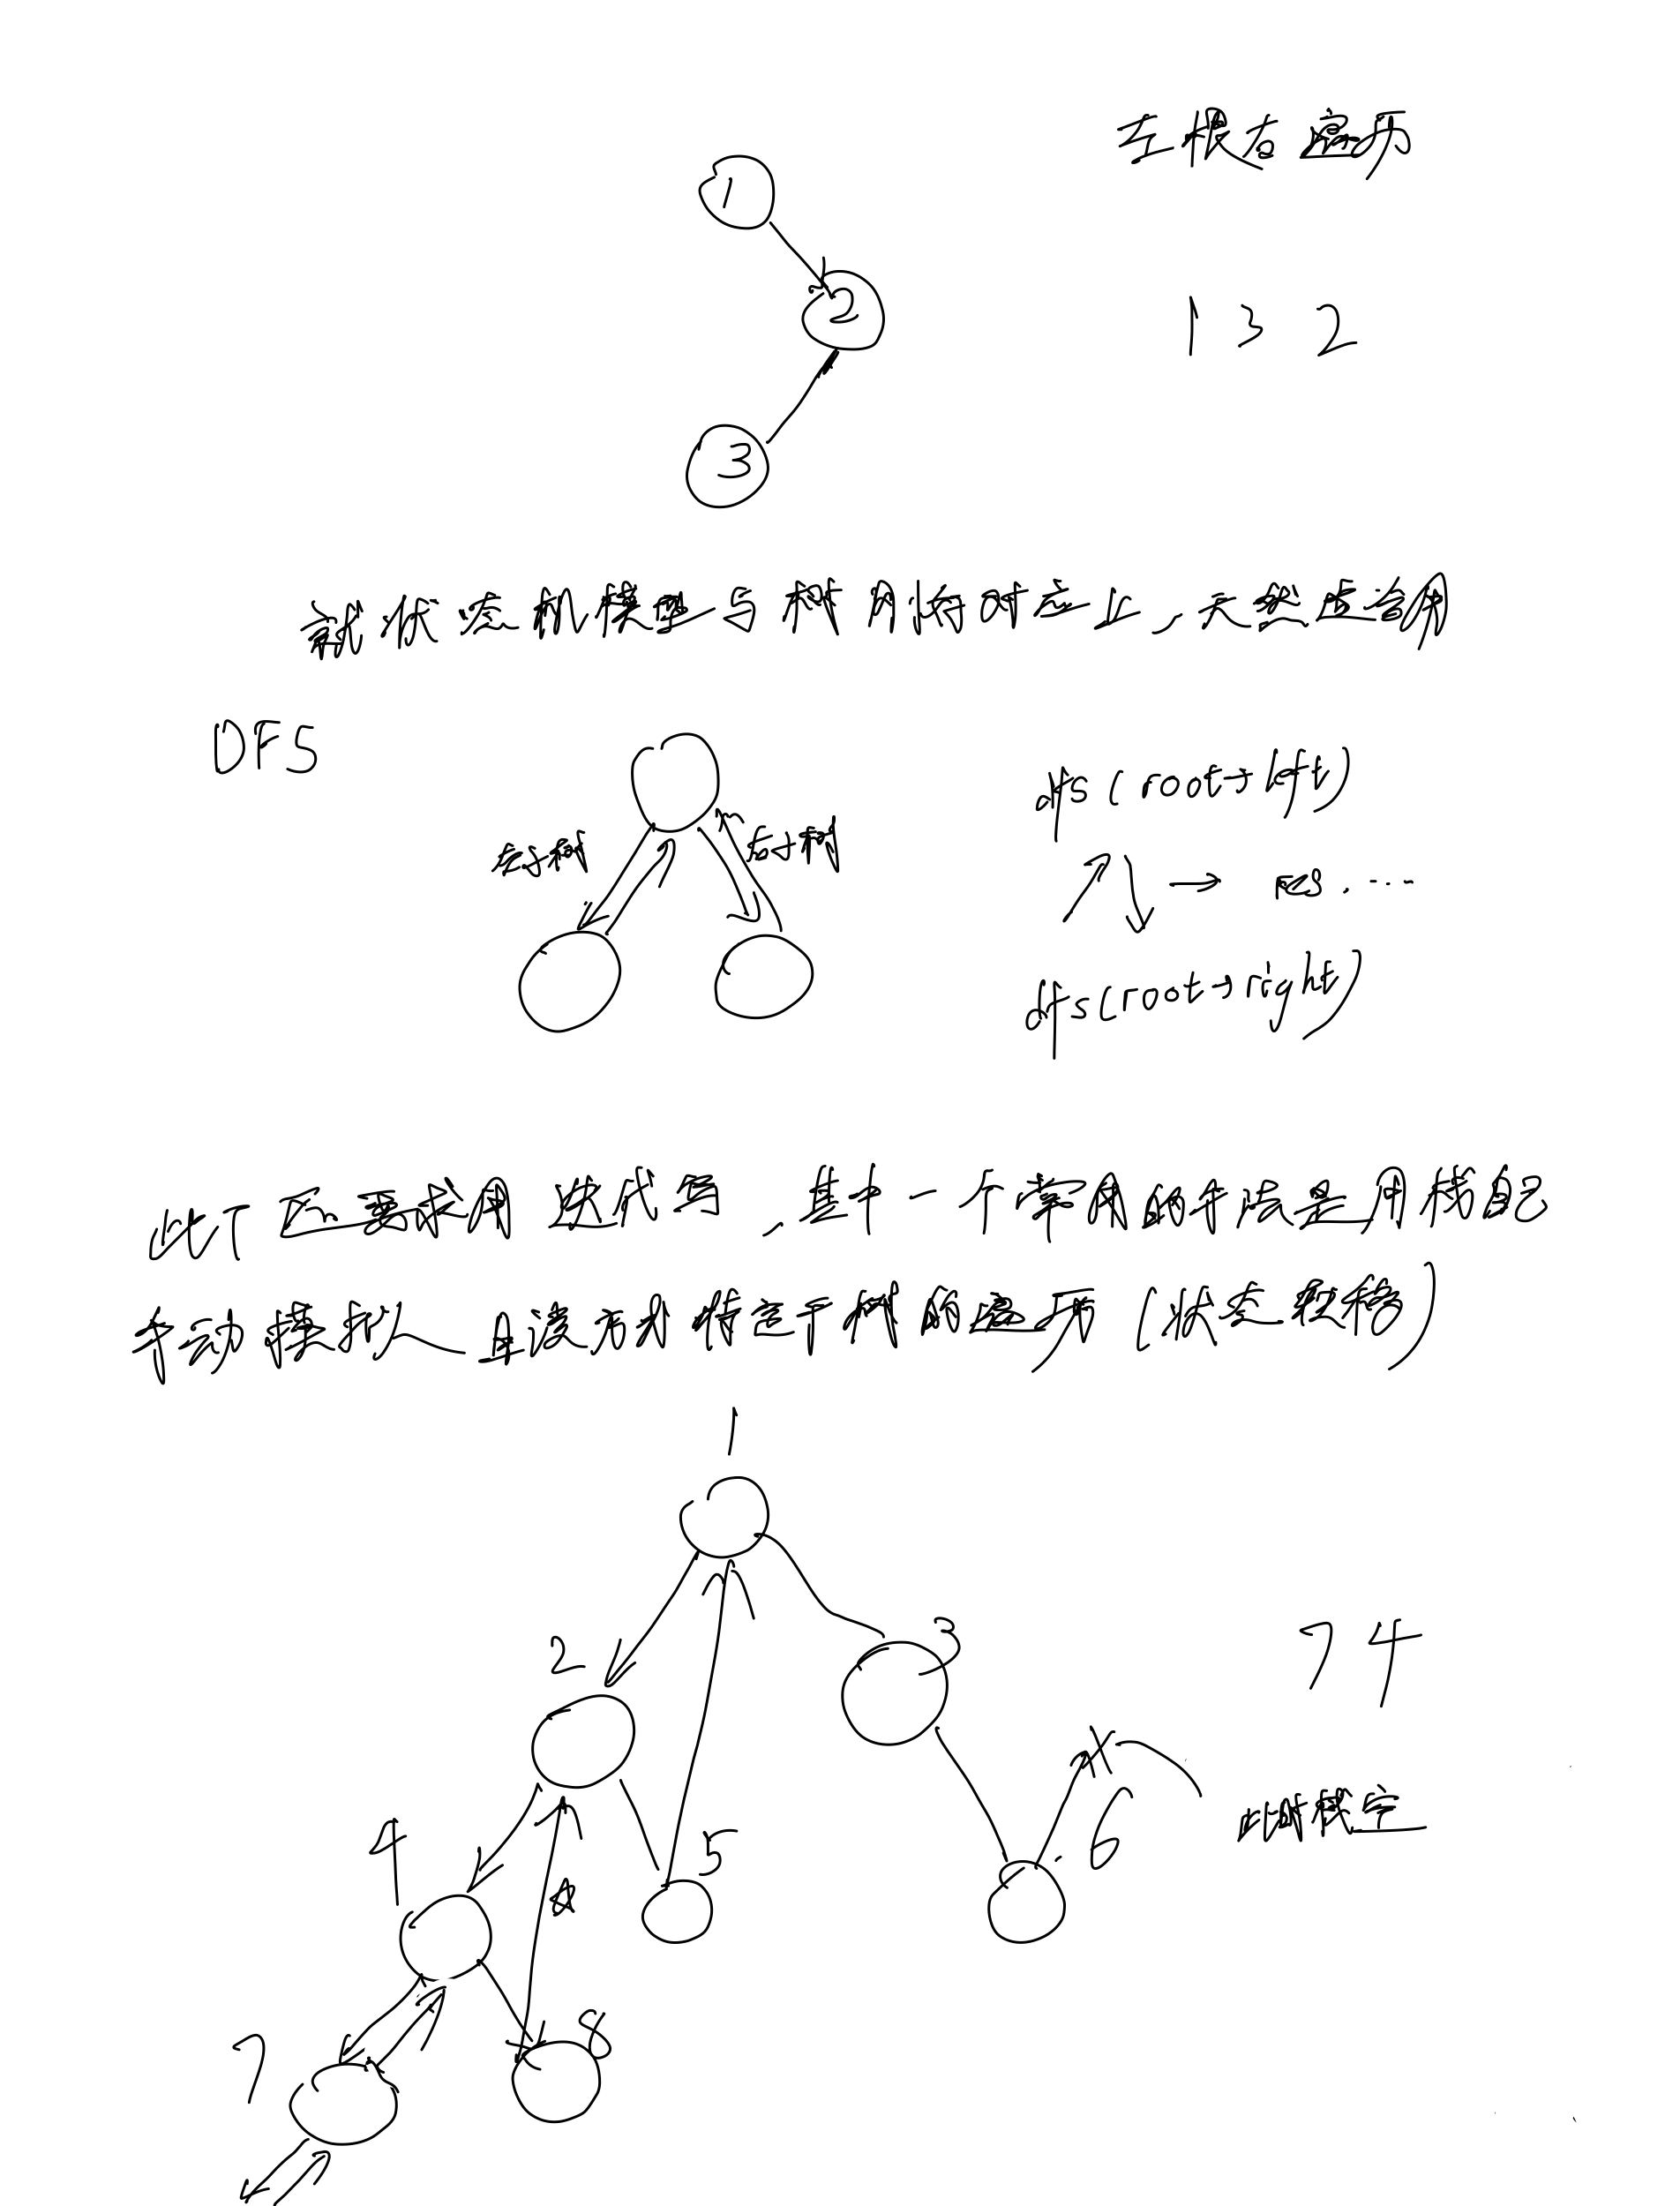 左根右遍历
1
2
1 3 2
3
状态机模型与树刚恰对应上，天然适用
DFS
左子树
右子树
dfs(root→left)
→ res. ...
dfs(root→right)
此下还要求用迭代写，其中一个常用的手法是用栈自己
手动模拟，且该方式特定于树的遍历（状态转移）
1
2
3
7 4
4
5
6
此时栈空
7
8